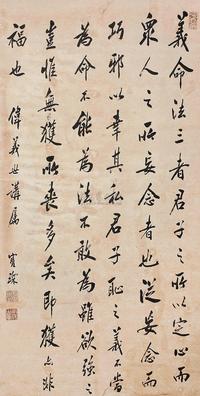 義命法三者君子之所以定心而
眾人之所妄念者也從妄念而
巧邪以幸其私君子恥之義不當
為命不能為法不敢為雖欲強之
豈惟無獲所喪多矣即獲亦非
福也 偉義世講屬 寶琛